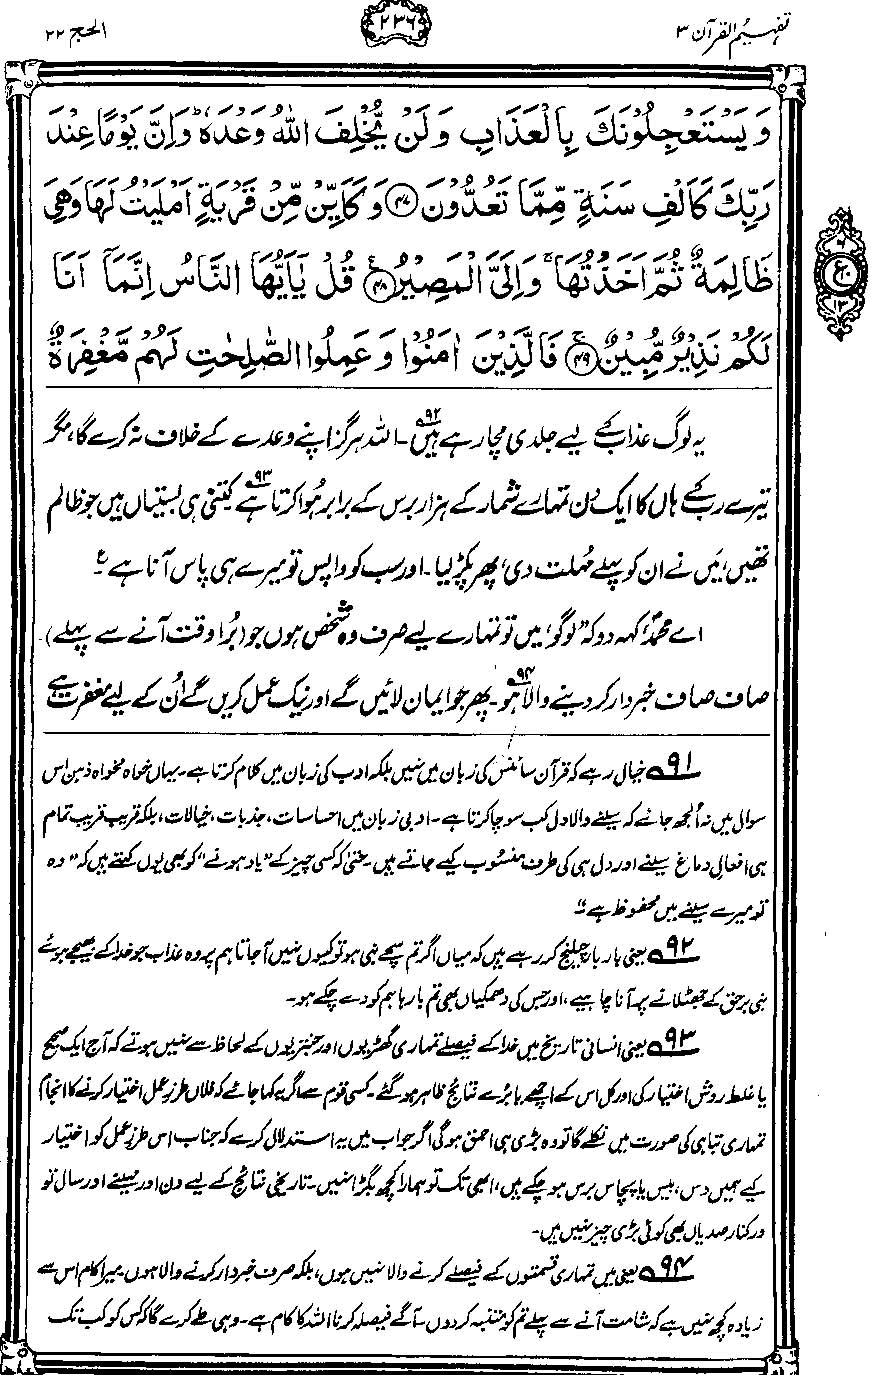 تفہیم القرآن ۳
۲۳۶
الحج ۲۲
وَيَسْتَعْجِلُوْنَكَ بِالْعَذَابِ وَلَنْ يُّخْلِفَ اللّٰهُ وَعْدَهٗ ؕ وَاِنَّ يَوْمًا عِنْدَ
رَبِّكَ كَاَلْفِ سَنَةٍ مِّمَّا تَعُدُّوْنَ ﴿۴۷﴾ وَكَاَيِّنْ مِّنْ قَرْيَةٍ اَمْلَيْتُ لَهَا وَهِيَ
ظَالِمَةٌ ثُمَّ اَخَذْتُهَا ۚ وَاِلَيَّ الْمَصِيْرُ ﴿۴۸﴾ قُلْ يٰۤاَيُّهَا النَّاسُ اِنَّمَاۤ اَنَا
لَكُمْ نَذِيْرٌ مُّبِيْنٌ ﴿۴۹﴾ فَالَّذِيْنَ اٰمَنُوْا وَعَمِلُوا الصّٰلِحٰتِ لَهُمْ مَّغْفِرَةٌ
۶
ع
۱۳
یہ لوگ عذاب کے لیے جلدی مچا رہے ہیں۹۲۔ اللہ ہرگز اپنے وعدے کے خلاف نہ کرے گا، مگر
تیرے رب کے ہاں کا ایک دن تمہارے شمار کے ہزار برس کے برابر ہُوا کرتا ہے۹۳۔ کتنی ہی بستیاں ہیں جو ظالم
تھیں، مَیں نے ان کو پہلے مُہلت دی، پھر پکڑ لیا۔ اور سب کو واپس تو میرے ہی پاس آنا ہے۔ ع
اے محمدؐ، کہہ دو کہ "لوگو، میں تو تمہارے لیے صرف وہ شخص ہوں جو (بُرا وقت آنے سے پہلے)
صاف صاف خبردار کر دینے والا ہو۹۴۔ پھر جو ایمان لائیں گے اور نیک عمل کریں گے اُن کے لیے مغفرت ہے
۹۱ خیال رہے کہ قرآن سائنس کی زبان میں نہیں بلکہ ادب کی زبان میں کلام کرتا ہے۔ یہاں خواہ مخواہ ذہن اس
سوال میں نہ اُلجھ جائے کہ سینے والا دل کب سوچا کرتا ہے۔ ادبی زبان میں احساسات، جذبات، خیالات، بلکہ قریب قریب تمام
ہی افعالِ دماغ سینے اور دل ہی کی طرف منسوب کیے جاتے ہیں۔ حتیٰ کہ کسی چیز کے "یاد ہونے" کو بھی یوں کہتے ہیں کہ "وہ
تو میرے سینے میں محفوظ ہے"۔
۹۲ یعنی بار بار چیلنج کر رہے ہیں کہ میاں اگر تم سچے نبی ہو تو کیوں نہیں آ جاتا ہم پر وہ عذاب جو خدا کے بھیجے ہوئے
نبی برحق کے جھٹلانے پر آنا چاہیے، اور جس کی دھمکیاں بھی تم بارہا ہم کو دے چکے ہو۔
۹۳ یعنی انسانی تاریخ میں خدا کے فیصلے تمہاری گھڑیوں اور جنتریوں کے لحاظ سے نہیں ہوتے کہ آج ایک صحیح
یا غلط روش اختیار کی اور کل اس کے اچھے یا بُرے نتائج ظاہر ہو گئے۔ کسی قوم سے اگر یہ کہا جائے کہ فلاں طرزِ عمل اختیار کرنے کا انجام
تمہاری تباہی کی صورت میں نکلے گا تو وہ بڑی ہی احمق ہو گی اگر جواب میں یہ استدلال کرے کہ جناب اس طرزِ عمل کو اختیار
کیے ہمیں دس، بیس یا پچاس برس ہو چکے ہیں، ابھی تک تو ہمارا کچھ بگڑا نہیں۔ تاریخی نتائج کے لیے دن اور مہینے اور سال تو
درکنار صدیاں بھی کوئی بڑی چیز نہیں ہیں۔
۹۴ یعنی میں تمہاری قسمتوں کے فیصلے کرنے والا نہیں ہوں، بلکہ صرف خبردار کرنے والا ہوں۔ میرا کام اس سے
زیادہ کچھ نہیں ہے کہ شامت آنے سے پہلے تم کو متنبہ کر دوں۔ آگے فیصلہ کرنا اللہ کا کام ہے۔ وہی طے کرے گا کہ کس کو کب تک